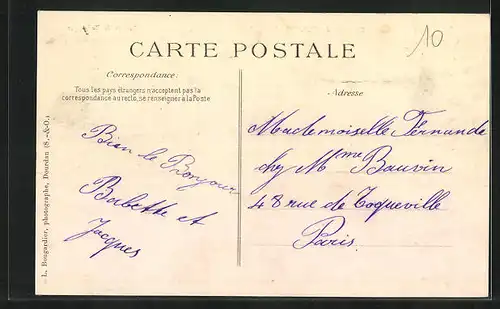 10
CARTE POSTALE
Correspondance.
Tous les pays étrangers n'acceptent pas la
correspondance au recto, se renseigner à la Poste
Adresse
Bien le Bonjour
Babette et
Jacques
Mademoiselle Fernande
chez Mme Bauvin
48 rue de Toqueville
Paris
L. Bougardier, photographe, Dourdan (S.-&-O.)